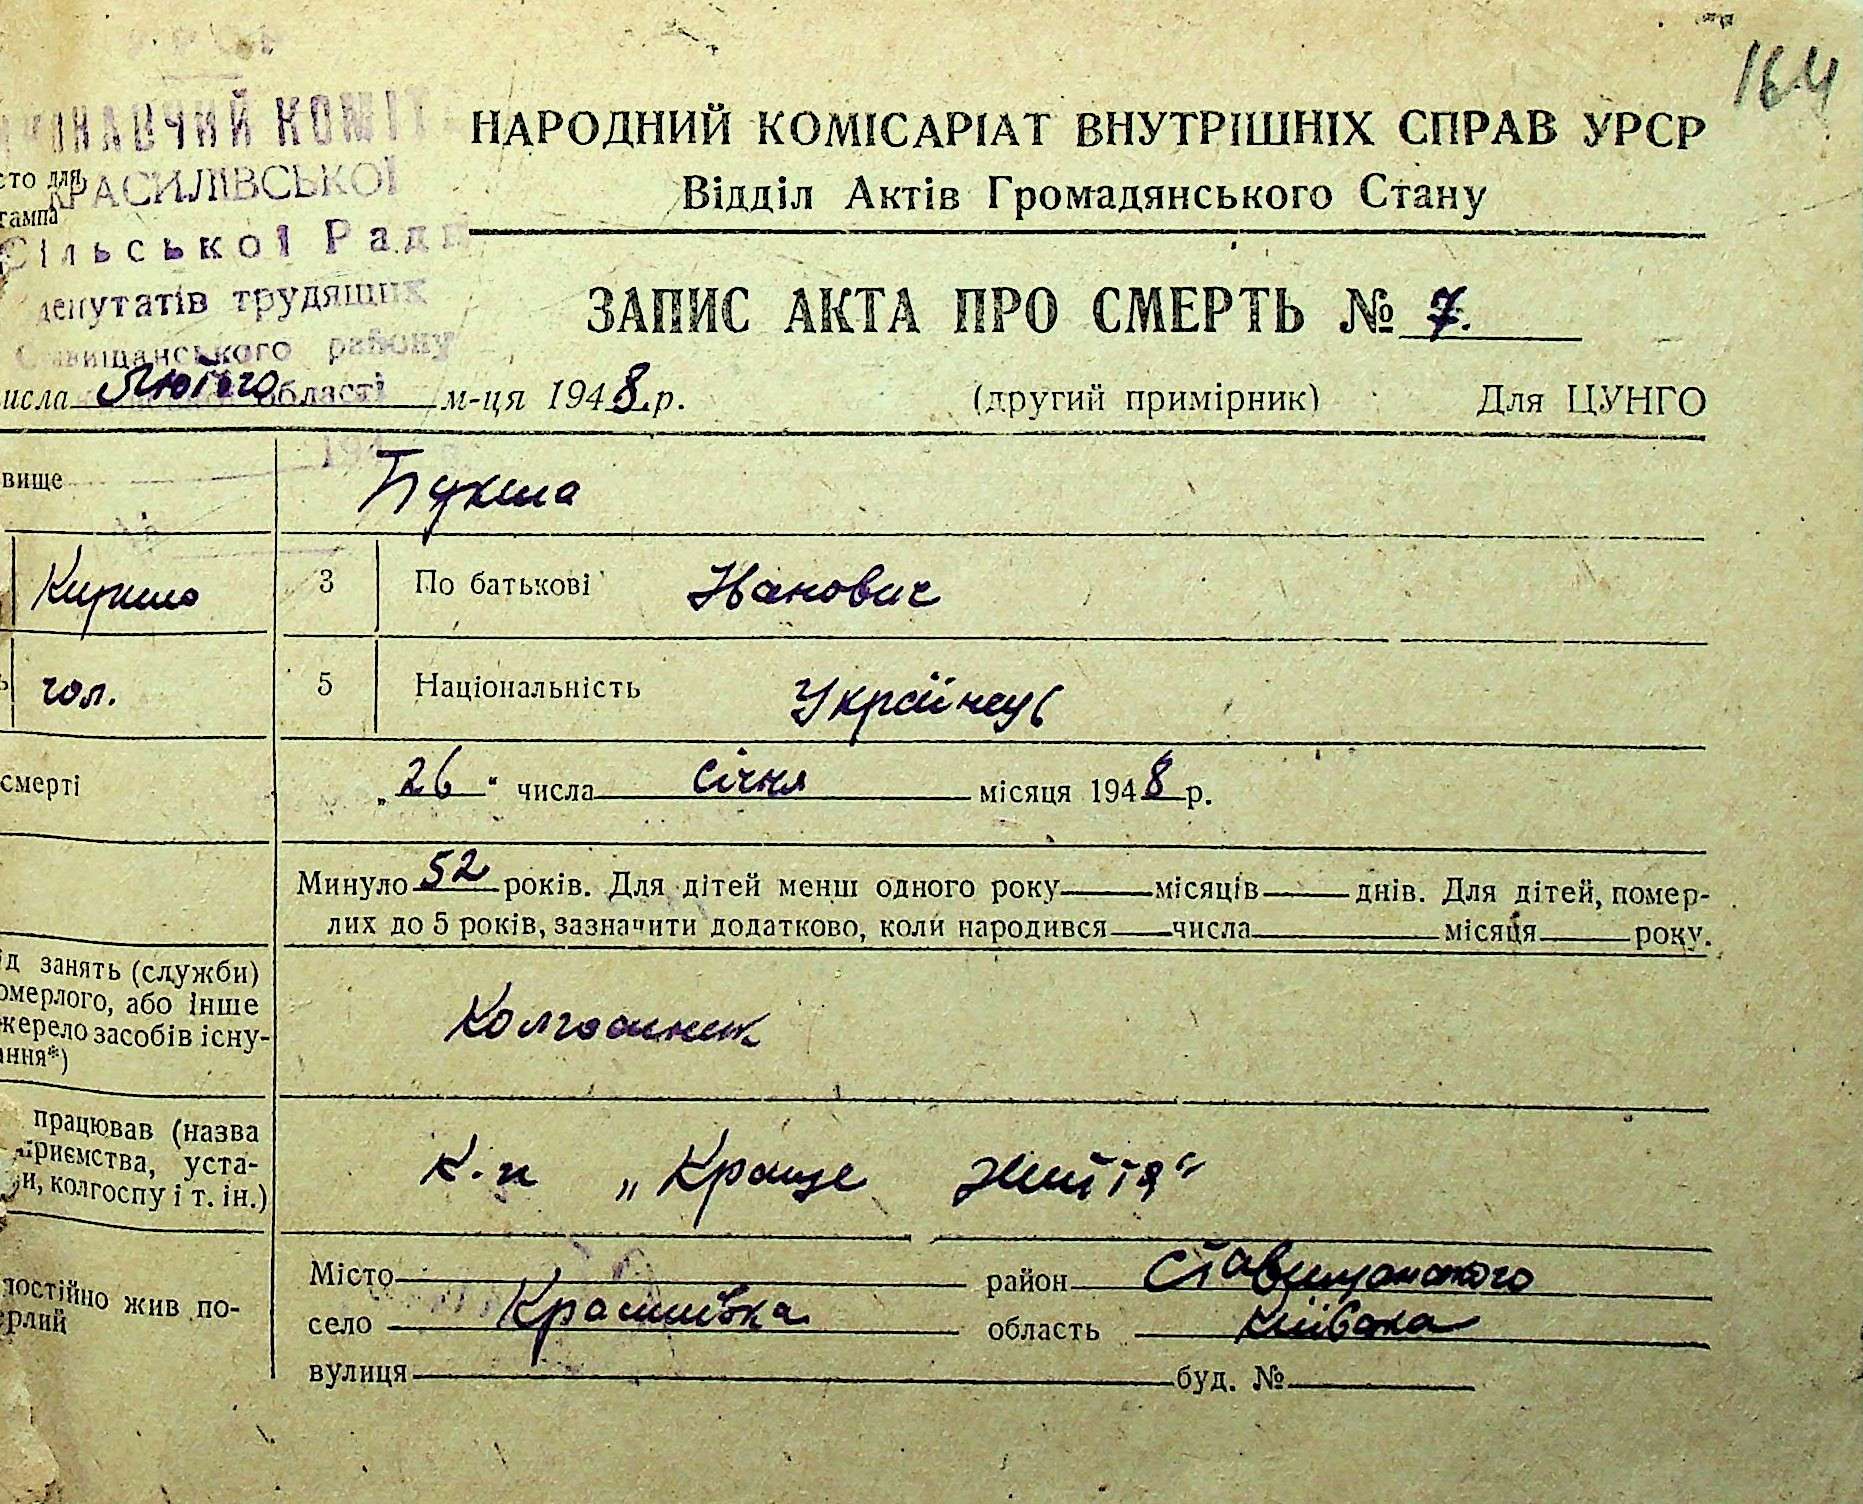 164
ВИКОНАВЧИЙ КОМІТ
КРАСИЛІВСЬКОЇ
Сільської Ради
депутатів трудящих
Ставищанського району
області
сто для
тампа
НАРОДНИЙ КОМІСАРІАТ ВНУТРІШНІХ СПРАВ УРСР
Відділ Актів Громадянського Стану
ЗАПИС АКТА ПРО СМЕРТЬ № 7.
исла Лютого м-ця 1948 р. (другий примірник) Для ЦУНГО
194
вище
Кирило 3 По батькові Іванович
чол. 5 Національність Українець
смерті „26“ числа січня місяця 1948 р.
Минуло 52 років. Для дітей менш одного року місяців днів. Для дітей, помер-
лих до 5 років, зазначити додатково, коли народився числа місяця року.
ід занять (служби)
омерлого, або інше
жерело засобів існу-
ання*)
Колгоспник
працював (назва
приємства, уста-
и, колгоспу і т. ін.)
К-п „Краще життя“
постійно жив по-
ерлий
Місто район Ставищанського
село Красилівка область Київська
вулиця буд. №